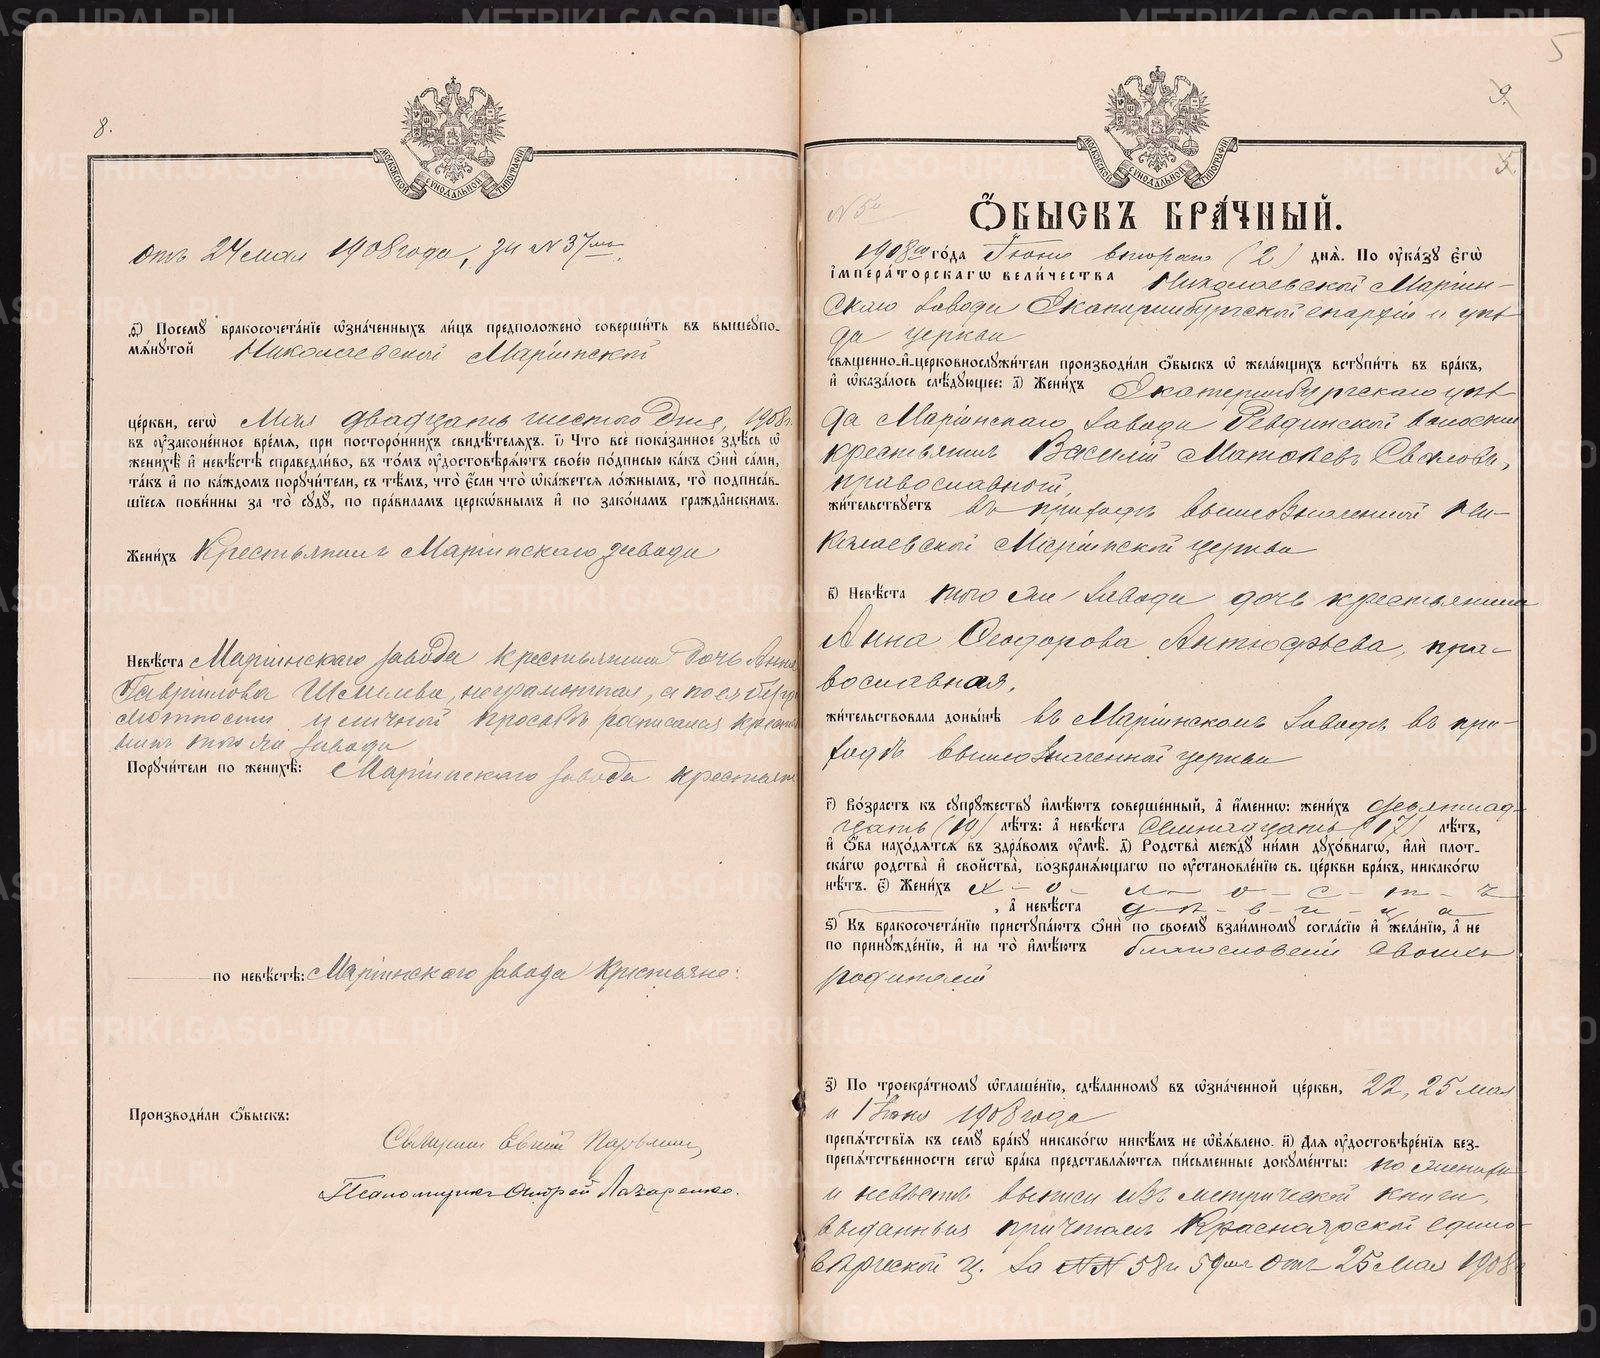 8.
МОСКОВСКОЙ СѴНОДАЛЬНОЙ ТИПОГРАФІИ
отъ 24 мая 1908 года, за N 37мъ.
ѳ҃) Посемꙋ бракосочета́нїе ѡ҆зна́ченныхъ ли́цъ предположено̀ соверши́ть въ вышеꙋпо-
мѧ́нꙋтой Николаевской Маріинской
це́ркви, сегѡ̀ Мая двадцать шестого Дня, 1908г.
въ ᲂу҆зако́ненное вре́мѧ, при посторо́ннихъ свидѣ́телѧхъ. і҃) Что̀ всѐ пока́занное здѣ́сь ѡ҆
женихѣ̀ и҆ невѣ́стѣ справедли́во, въ то́мъ ᲂу҆достовѣрѧ́ютъ свое́ю по́дписью ка́къ ѻ҆нѝ са́ми,
та́къ и҆ по ка́ждомъ порꙋчи́тели, съ тѣ́мъ, что̀ є҆́сли что̀ ѡ҆ка́жетсѧ ло́жнымъ, то̀ подписа́в-
шїесѧ пови́нны за то̀ сꙋдꙋ̀, по пра́виламъ церкѡ́внымъ и҆ по зако́намъ гражда́нскимъ.
Жени́хъ Крестьянинъ Маріинскаго завода
Невѣ́ста Маріинскаго завода крестьянина дочь Анна
Гавріилова Шмелева, неграмотная, а по ея безгра
мотности и личной просьбѣ росписался кресть
нинъ того же завода
Порꙋчи́тели по женихѣ̀: Маріинскаго завода крестьяне
по невѣ́стѣ: Маріинскаго завода Крестьяне:
Производи́ли ѻ҆́быскъ:
Священникъ Евгеній
Псаломщикъ Андрей Лазаренко.
5
9.
5
МОСКОВСКОЙ СѴНОДАЛЬНОЙ ТИПОГРАФІИ
N 5й
Ѻ҆́БЫСКЪ БРА́ЧНЫЙ.
1908го го́да Іюня второго (2) днѧ̀. По ᲂу҆ка́зꙋ є҆гѡ̀
і҆мпера́торскагѡ вели́чества Николаевской Маріин-
скаго завода Екатеринбургской епархіи и уѣз
да церкви
свѧще́нно-и҆-церковнослꙋжи́тели производи́ли ѻ҆́быскъ ѡ҆ жела́ющихъ встꙋпи́ть въ бра́къ,
и҆ ѡ҆каза́лось слѣ́дꙋющее: а҃) Жени́хъ Екатеринбургскаго уѣз
да Маріинскаго завода Ревдинской волости
крестьянинъ Василій Матвѣевъ Сваловъ,
православной,
жи́тельствꙋетъ въ приходѣ вышеозначенной Ни-
колаевской Маріинской церкви
в҃) Невѣ́ста того же завода дочь крестьянина
Анна Ѳеодорова Антюфьева, пра-
вославная,
жи́тельствовала доны́нѣ въ Маріинскомъ заводѣ въ при-
ходѣ вышеозначенной церкви
г҃) Во́зрастъ къ сꙋпрꙋ́жествꙋ и҆мѣ́ютъ соверше́нный, а҆ и҆́менно: жени́хъ девятнад-
цать (19) лѣ́тъ: а҆ невѣ́ста Семнадцать (17) лѣ́тъ,
и҆ ѻ҆́ба нахо́дѧтсѧ въ здра́вомъ ᲂу҆мѣ̀. д҃) Родства̀ междꙋ̀ ни́ми дꙋхо́внагѡ, и҆лѝ плот-
ска́гѡ родства̀ и҆ сво́йства, возбранѧ́ющагѡ по ᲂу҆становле́нїю св. це́ркви бра́къ, никако́гѡ
нѣ́тъ. є҃) Жени́хъ х-о-л-о-с-т-ъ
, а҆ невѣ́ста д-ѣ-в-и-ц-а
ѕ҃) Къ бракосочета́нїю пристꙋпа́ютъ ѻ҆нѝ по своемꙋ̀ взаи́мномꙋ согла́сїю и҆ жела́нїю, а҆ не
по принꙋжде́нїю, и҆ на то̀ и҆мѣ́ютъ благословеніи своихъ
родителей
з҃) По троекра́тномꙋ ѡ҆глаше́нїю, сдѣ́ланномꙋ въ ѡ҆зна́ченной це́ркви, 22, 25 мая
и 1 Іюня 1908 года
препѧ́тствїѧ къ семꙋ̀ бра́кꙋ никако́гѡ никѣ́мъ не ѡ҆б̾ѧ́влено. и҃) Длѧ ᲂу҆достовѣре́нїѧ без-
препѧ́тственности сегѡ̀ бра́ка представлѧ́ютсѧ пи́сьменные докꙋме́нты: по женихѣ
и невѣстѣ выписи изъ метрической книги,
выданныя причтомъ Красноярской едино-
вѣрческой ц. за NN 58 и 59мъ отъ 25 Мая 1908г